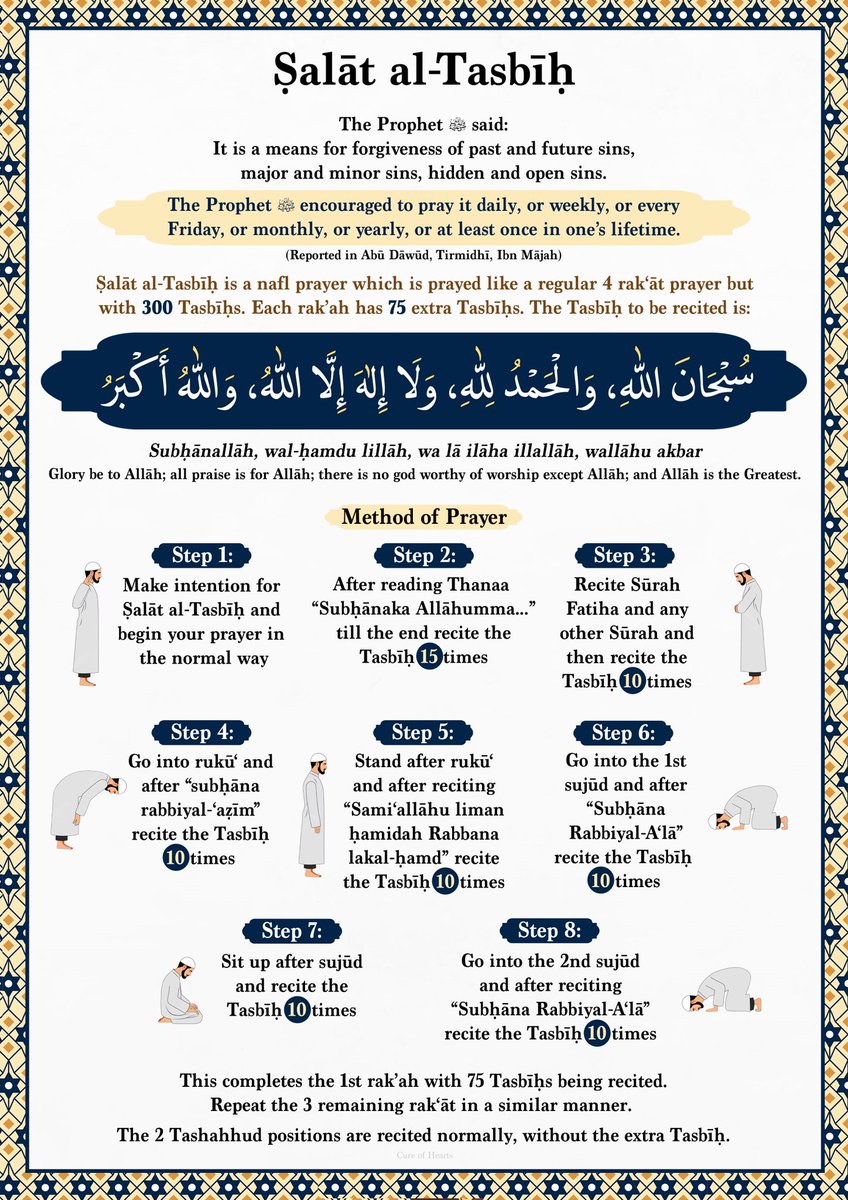 Ṣalāt al-Tasbīḥ
The Prophet ﷺ said:
It is a means for forgiveness of past and future sins,
major and minor sins, hidden and open sins.
The Prophet ﷺ encouraged to pray it daily, or weekly, or every
Friday, or monthly, or yearly, or at least once in one's lifetime.
(Reported in Abū Dāwūd, Tirmidhī, Ibn Mājah)
Ṣalāt al-Tasbīḥ is a nafl prayer which is prayed like a regular 4 rak‘āt prayer but
with 300 Tasbīḥs. Each rak’ah has 75 extra Tasbīḥs. The Tasbīḥ to be recited is:
سُبْحَانَ اللّٰهِ، وَالْحَمْدُ لِلّٰهِ، وَلَا إِلٰهَ إِلَّا اللّٰهُ، وَاللّٰهُ أَكْبَرُ
Subḥānallāh, wal-ḥamdu lillāh, wa lā ilāha illallāh, wallāhu akbar
Glory be to Allāh; all praise is for Allāh; there is no god worthy of worship except Allāh; and Allāh is the Greatest.
Method of Prayer
Step 1:
Make intention for
Ṣalāt al-Tasbīḥ and
begin your prayer in
the normal way
Step 2:
After reading Thanaa
“Subḥānaka Allāhumma...”
till the end recite the
Tasbīḥ 15 times
Step 3:
Recite Sūrah
Fatiha and any
other Sūrah and
then recite the
Tasbīḥ 10 times
Step 4:
Go into rukū‘ and
after “subḥāna
rabbiyal-‘aẓīm”
recite the Tasbīḥ
10 times
Step 5:
Stand after rukū‘
and after reciting
“Sami‘allāhu liman
ḥamidah Rabbana
lakal-ḥamd” recite
the Tasbīḥ 10 times
Step 6:
Go into the 1st
sujūd and after
“Subḥāna
Rabbiyal-A‘lā”
recite the Tasbīḥ
10 times
Step 7:
Sit up after sujūd
and recite the
Tasbīḥ 10 times
Step 8:
Go into the 2nd sujūd
and after reciting
“Subḥāna Rabbiyal-A‘lā”
recite the Tasbīḥ 10 times
This completes the 1st rak’ah with 75 Tasbīḥs being recited.
Repeat the 3 remaining rak‘āt in a similar manner.
The 2 Tashahhud positions are recited normally, without the extra Tasbīḥ.
Cure of Hearts